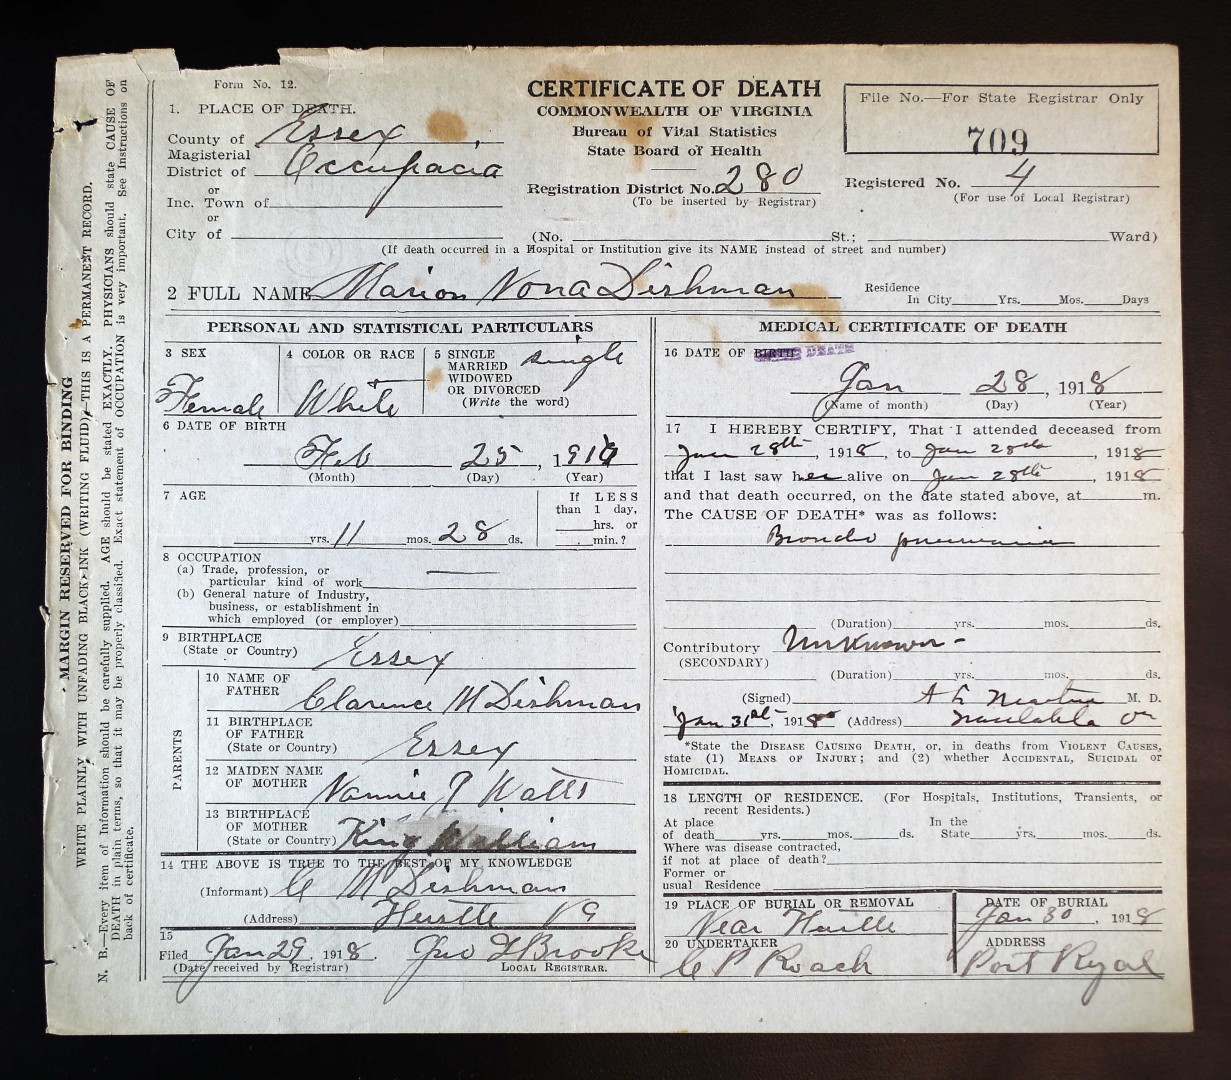 Form No. 12.
CERTIFICATE OF DEATH
COMMONWEALTH OF VIRGINIA
Bureau of Vital Statistics
State Board of Health
File No.—For State Registrar Only
709
1. PLACE OF DEATH.
County of Essex
Magisterial
District of Occupacia
or
Inc. Town of
or
City of
Registration District No. 280
(To be inserted by Registrar)
Registered No. 4
(For use of Local Registrar)
(No. St.; Ward)
(If death occurred in a Hospital or Institution give its NAME instead of street and number)
2 FULL NAME Marion Nona Dishman
Residence
In City Yrs. Mos. Days
PERSONAL AND STATISTICAL PARTICULARS
3 SEX
Female
4 COLOR OR RACE
White
5 SINGLE
MARRIED
WIDOWED
OR DIVORCED
(Write the word)
single
6 DATE OF BIRTH
Feb 25, 191
(Month) (Day) (Year)
7 AGE
yrs. 11 mos. 28 ds.
If LESS
than 1 day,
hrs. or
min.?
8 OCCUPATION
(a) Trade, profession, or
particular kind of work
(b) General nature of Industry,
business, or establishment in
which employed (or employer)
9 BIRTHPLACE
(State or Country) Essex
PARENTS
10 NAME OF
FATHER Clarence M Dishman
11 BIRTHPLACE
OF FATHER
(State or Country) Essex
12 MAIDEN NAME
OF MOTHER Nannie Watts
13 BIRTHPLACE
OF MOTHER
(State or Country) King William
14 THE ABOVE IS TRUE TO THE BEST OF MY KNOWLEDGE
(Informant) C M Dishman
(Address) Hustle Va
15
Filed Jan 29, 1918. Geo Brooke
(Date received by Registrar) LOCAL REGISTRAR.
MEDICAL CERTIFICATE OF DEATH
16 DATE OF BIRTH DEATH
Jan 28, 1918
(Name of month) (Day) (Year)
17 I HEREBY CERTIFY, That I attended deceased from
Jan 28th, 1918, to Jan 28th, 1918
that I last saw her alive on Jan 28th, 1918
and that death occurred, on the date stated above, at m.
The CAUSE OF DEATH* was as follows:
Broncho pneumonia
(Duration) yrs. mos. ds.
Contributory Unknown-
(SECONDARY)
(Duration) yrs. mos. ds.
(Signed) A M. D.
Jan 31st, 1918 (Address)
*State the DISEASE CAUSING DEATH, or, in deaths from VIOLENT CAUSES,
state (1) MEANS OF INJURY; and (2) whether ACCIDENTAL, SUICIDAL or
HOMICIDAL.
18 LENGTH OF RESIDENCE. (For Hospitals, Institutions, Transients, or
recent Residents.)
At place In the
of death yrs. mos. ds. State yrs. mos. ds.
Where was disease contracted,
if not at place of death?
Former or
usual Residence
19 PLACE OF BURIAL OR REMOVAL
Near Hustle
DATE OF BURIAL
Jan 30, 1918
20 UNDERTAKER
C P Roach
ADDRESS
Port Royal
MARGIN RESERVED FOR BINDING
WRITE PLAINLY WITH UNFADING BLACK INK (WRITING FLUID)—THIS IS A PERMANENT RECORD.
N. B.—Every item of Information should be carefully supplied. AGE should be stated EXACTLY. PHYSICIANS should state CAUSE OF
DEATH in plain terms, so that it may be properly classified. Exact statement of OCCUPATION is very important. See Instructions on
back of certificate.